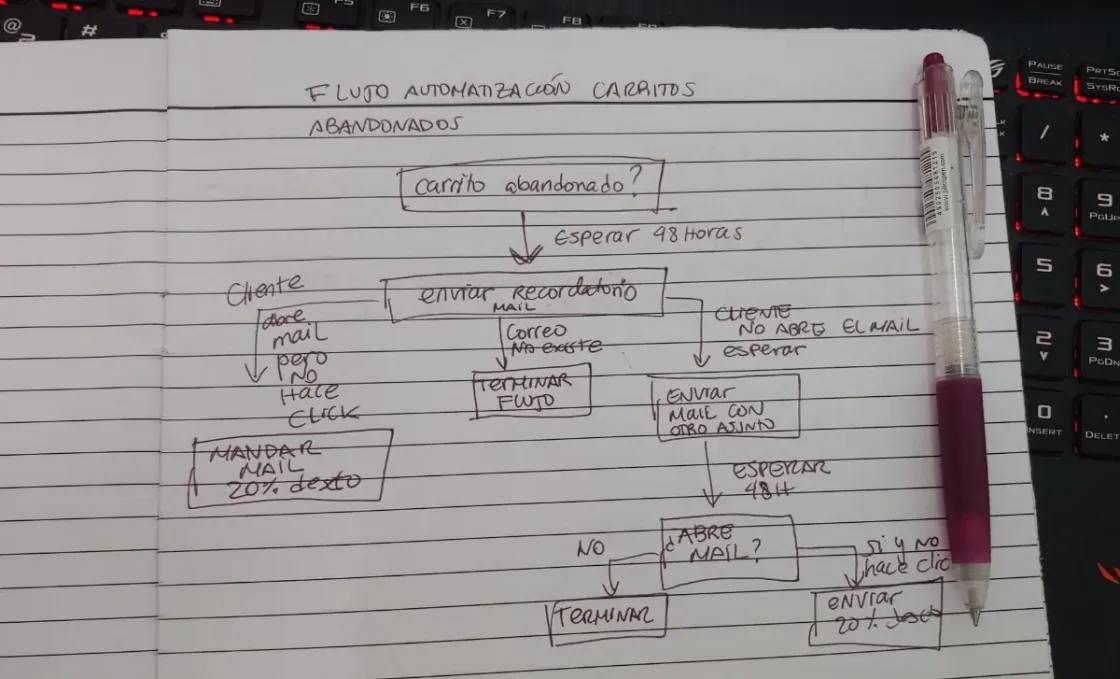 @
2
#
F5
F6
F7
F8
F9
PAUSE
BREAK
PRTSC
SYSRQ
/
*
8
9
PGUP
5
6
2
3
PGDN
0
INSERT
.
DELET
FLUJO AUTOMATIZACIÓN CARRITOS
ABANDONADOS
carrito abandonado?
Esperar 48 Horas
enviar recordatorio
MAIL
Cliente
abre
mail
pero
NO
Hace
CLICK
MANDAR
MAIL
20% descto
Correo
No existe
TERMINAR
FLUJO
CLIENTE
NO ABRE EL MAIL
esperar
ENVIAR
MAIL CON
OTRO ASUNTO
ESPERAR
48H
¿ABRE
MAIL?
NO
TERMINAR
Si y NO
hace clic
enviar
20% descto